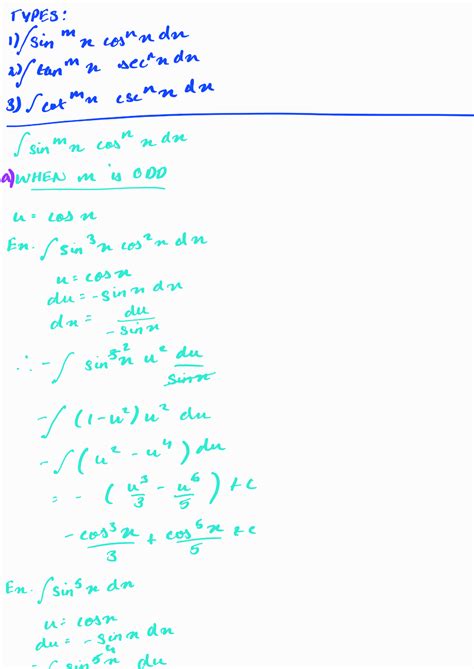 TYPES:
1) ∫ sin^m x cos^n x dx
2) ∫ tan^m x sec^n x dx
3) ∫ cot^m x csc^n x dx
∫ sin^m x cos^n x dx
a) WHEN m is ODD
u = cos x
Ex. ∫ sin^3 x cos^2 x dx
u = cos x
du = -sin x dx
dx = du / -sin x
∴ -∫ sin^3-2 x u^2 du / sin x
-∫ (1-u^2) u^2 du
-∫ (u^2 - u^4) du
= - (u^3/3 - u^5/5) + c
-cos^3 x / 3 + cos^5 x / 5 + c
Ex. ∫ sin^5 x dx
u = cos x
du = -sin x dx
-∫ sin^5 4 x du